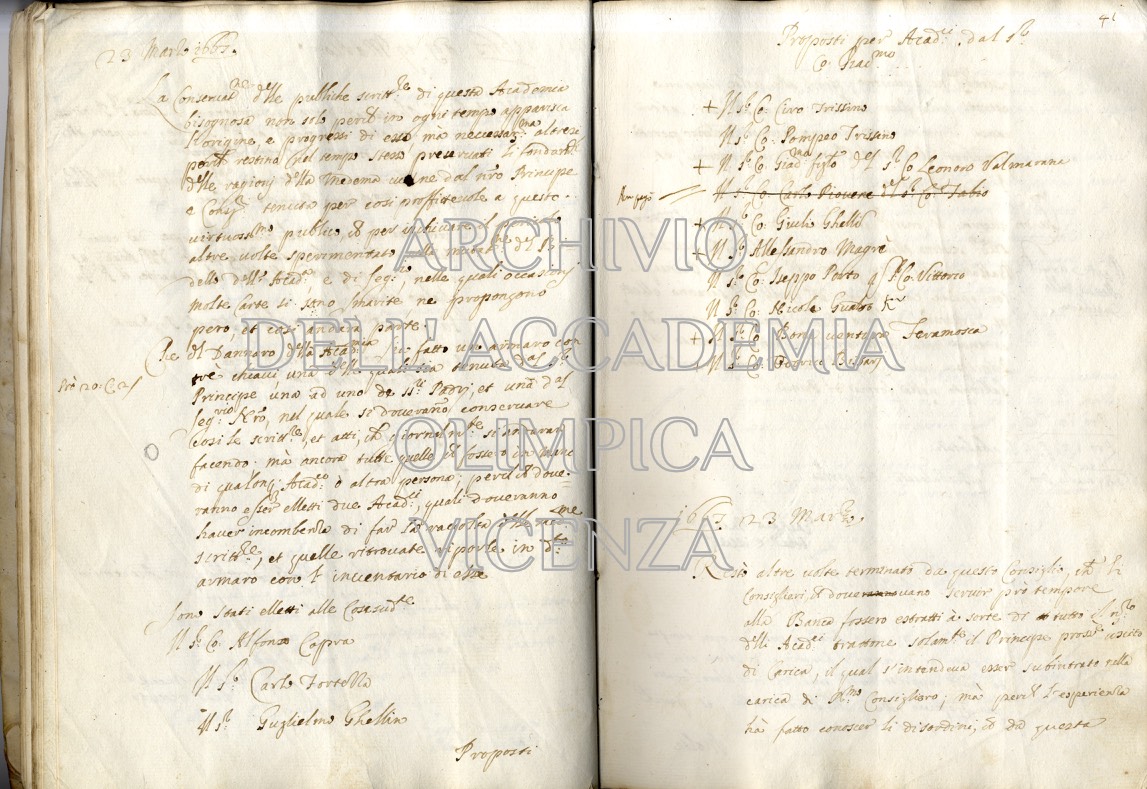 23 Marzo 1667.
La Conservat.ne delle publiche scritt.re di questa Academia
bisognosa non solo perche in ogni tempo apparisca
l'origine, e progressi di essa, mà necessar.ma altresi
perche restino nel tempo stesso preservati li fondam.ti
delle ragioni della medema viene dal nro Principe
e Consig. tenuta per cosi proffittevole a questo
virtuosissmo publico, che per ischivare il
altre volte sperimentato nella mutat.ne del S.r
dello dell'Acad.a, e di Seg.rio, nelle quali occasioni
molte carte si sono smarite ne propongono
però, et cosi andarà parte.
Che del Dannaro della Acad.mia sii fatto un armaro con
trè chiavi, una delle quali sia tenuta dal S.r
Prò 20: C. 2
Principe una ad uno de SS.ri Padri, et una dal
Seg.rio Nro, nel quale si doverano conservare
cosi le scritt.re, et atti, che giornalm.te si anderan
facendo mà ancora tutte quelle che fossero in mano
di qualonq. Acad.co ò altra persona; perilche dove-
ranno esser elletti due Acad.ci, quali doveranno
haver incombenza di far la raccolta delle
scritt.re, et quelle ritrovate riporle in d.to
armaro con l'inventario di esse
Sono stati elletti alle cose sud.te
Il S.r Co: Alfonso Capra
Il S.r Carlo Tortella
Il S.r Guglielmo Ghellin
Proposti
41
Proposti per Acad.ci dal S.r
Co: Giac.mo
+ Il S.r Co: Ciro Trissino
Il S.r Co: Pompeo Trissino
+ Il S.r Co: figlo del S.r Co Leonoro Valmarana
Non pagò Il S.r Co: Carlo Piovene del S.r Co: Fabio
+ Il S.r Co: Giulio Ghellin
+ Il S.r Allessandro Magrè
Il S.r Co: Iseppo Porto q. S.r Co: Vittorio
Il S.r Co: Nicola Gualdo Kr
+ Il S.r Co: Bonaventura Feramosca
+ Il S.r Co:
1667. 23 Marzo
Restò altre volte terminato da questo Consiglio, che li
Consiglieri, che doveranno vano servir prò tempore
alla Banca fossero estratti à sorte di tutto il n.ro
delli Acad.ci trattone solam.te il Principe pross.o uscito
di Carica, il qual s'intendeva esser subintrato nella
carica di Consigliero; mà perche l'esperienza
hà fatto conoscer li disordini, che da questa
ARCHIVIO
DELL'ACCADEMIA
OLIMPICA
VICENZA